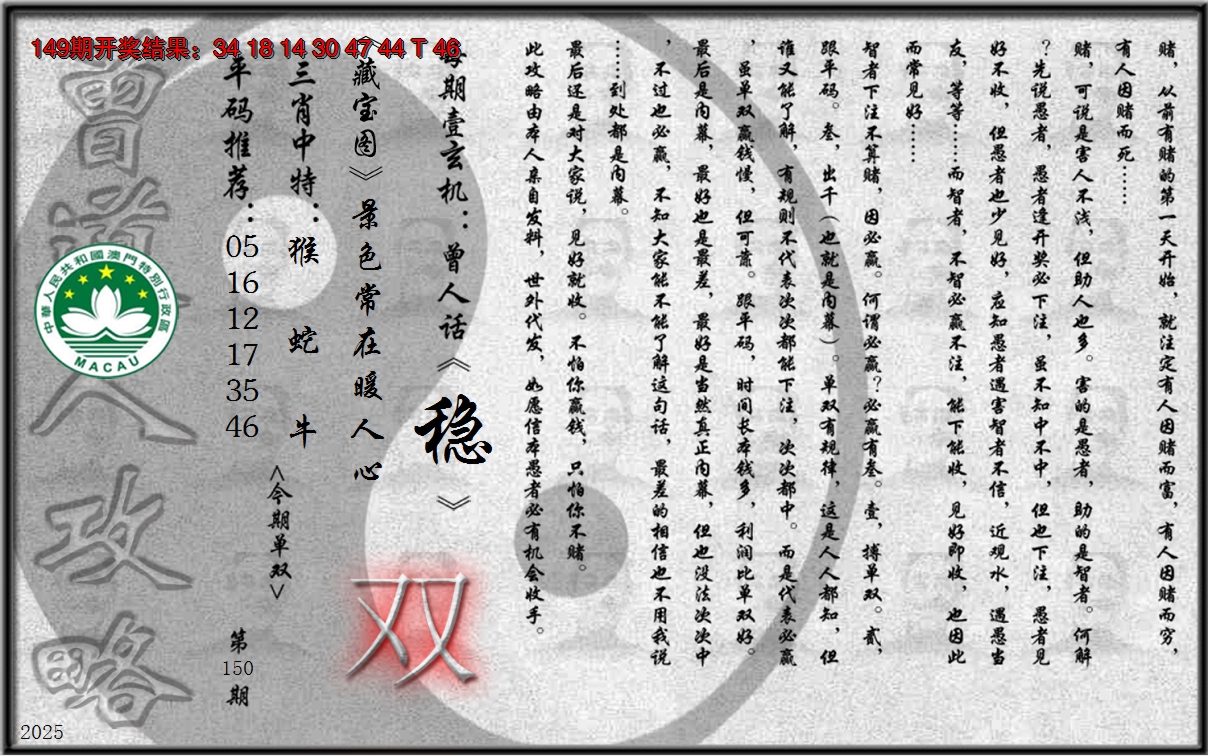 149期开奖结果：34 18 14 30 47 44 T 46
赌，从前有赌的第一天开始，就注定有人因赌而富，有人因赌而穷，
有人因赌而死……
赌，可说是害人不浅，但助人也多。害的是愚者，助的是智者。何解
？先说愚者，愚者逢开奖必下注，虽不知中不中，但也下注，愚者见
好不收，但愚者也少见好，应知愚者遇害智者不信，近观水，遇愚当
友，等等……而智者，不智必赢不注，能下能收，见好即收，也因此
而常见好……
智者下注不算赌，因必赢。何谓必赢？必赢有叁。壹，搏单双。贰，
跟平码。叁，出千（也就是内幕）。单双有规律，这是人人都知，但
谁又能了解，有规则不代表次次都能下注，次次都中。而是代表必赢
，虽单双赢钱慢，但可靠。跟平码，时间长本钱多，利润比单双好。
最后是内幕，最好也是最差，最好是当然真正内幕，但也没法次次中
，不过也必赢，不知大家能不能了解这句话，最差的相信也不用我说
……到处都是内幕。
最后还是对大家说，见好就收。不怕你赢钱，只怕你不赌。
此攻略由本人亲自发料，世外代发，如愿信本愚者必有机会收手。
每期壹玄机：曾人话《稳》
《藏宝图》景色常在暖人心
三肖中特：猴 蛇 牛
平码推荐：05 16 12 17 35 46
<今期单双>
双
第150期
曾道人攻略
中華人民共和國澳門特別行政區
MACAU
2025